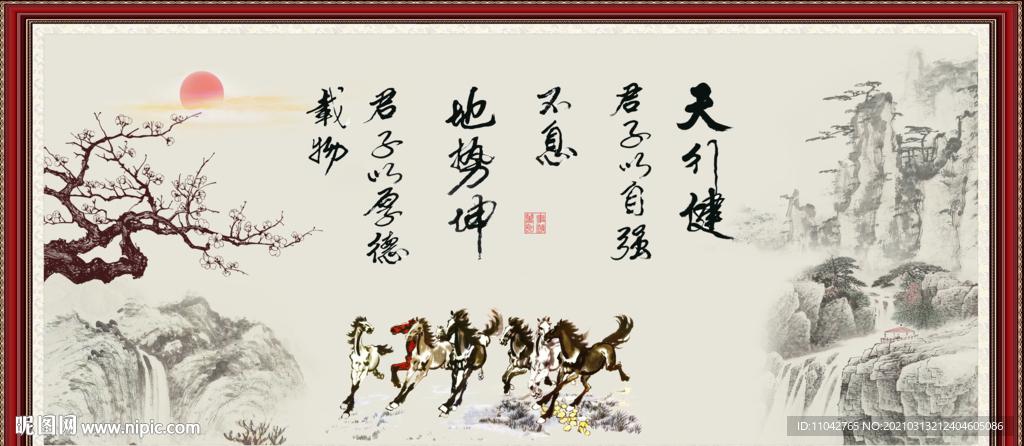 天行健
君子以自强
不息
地势坤
君子以厚德
载物
昵图网 www.nipic.com
ID:11042765 NO:20210313212404605086